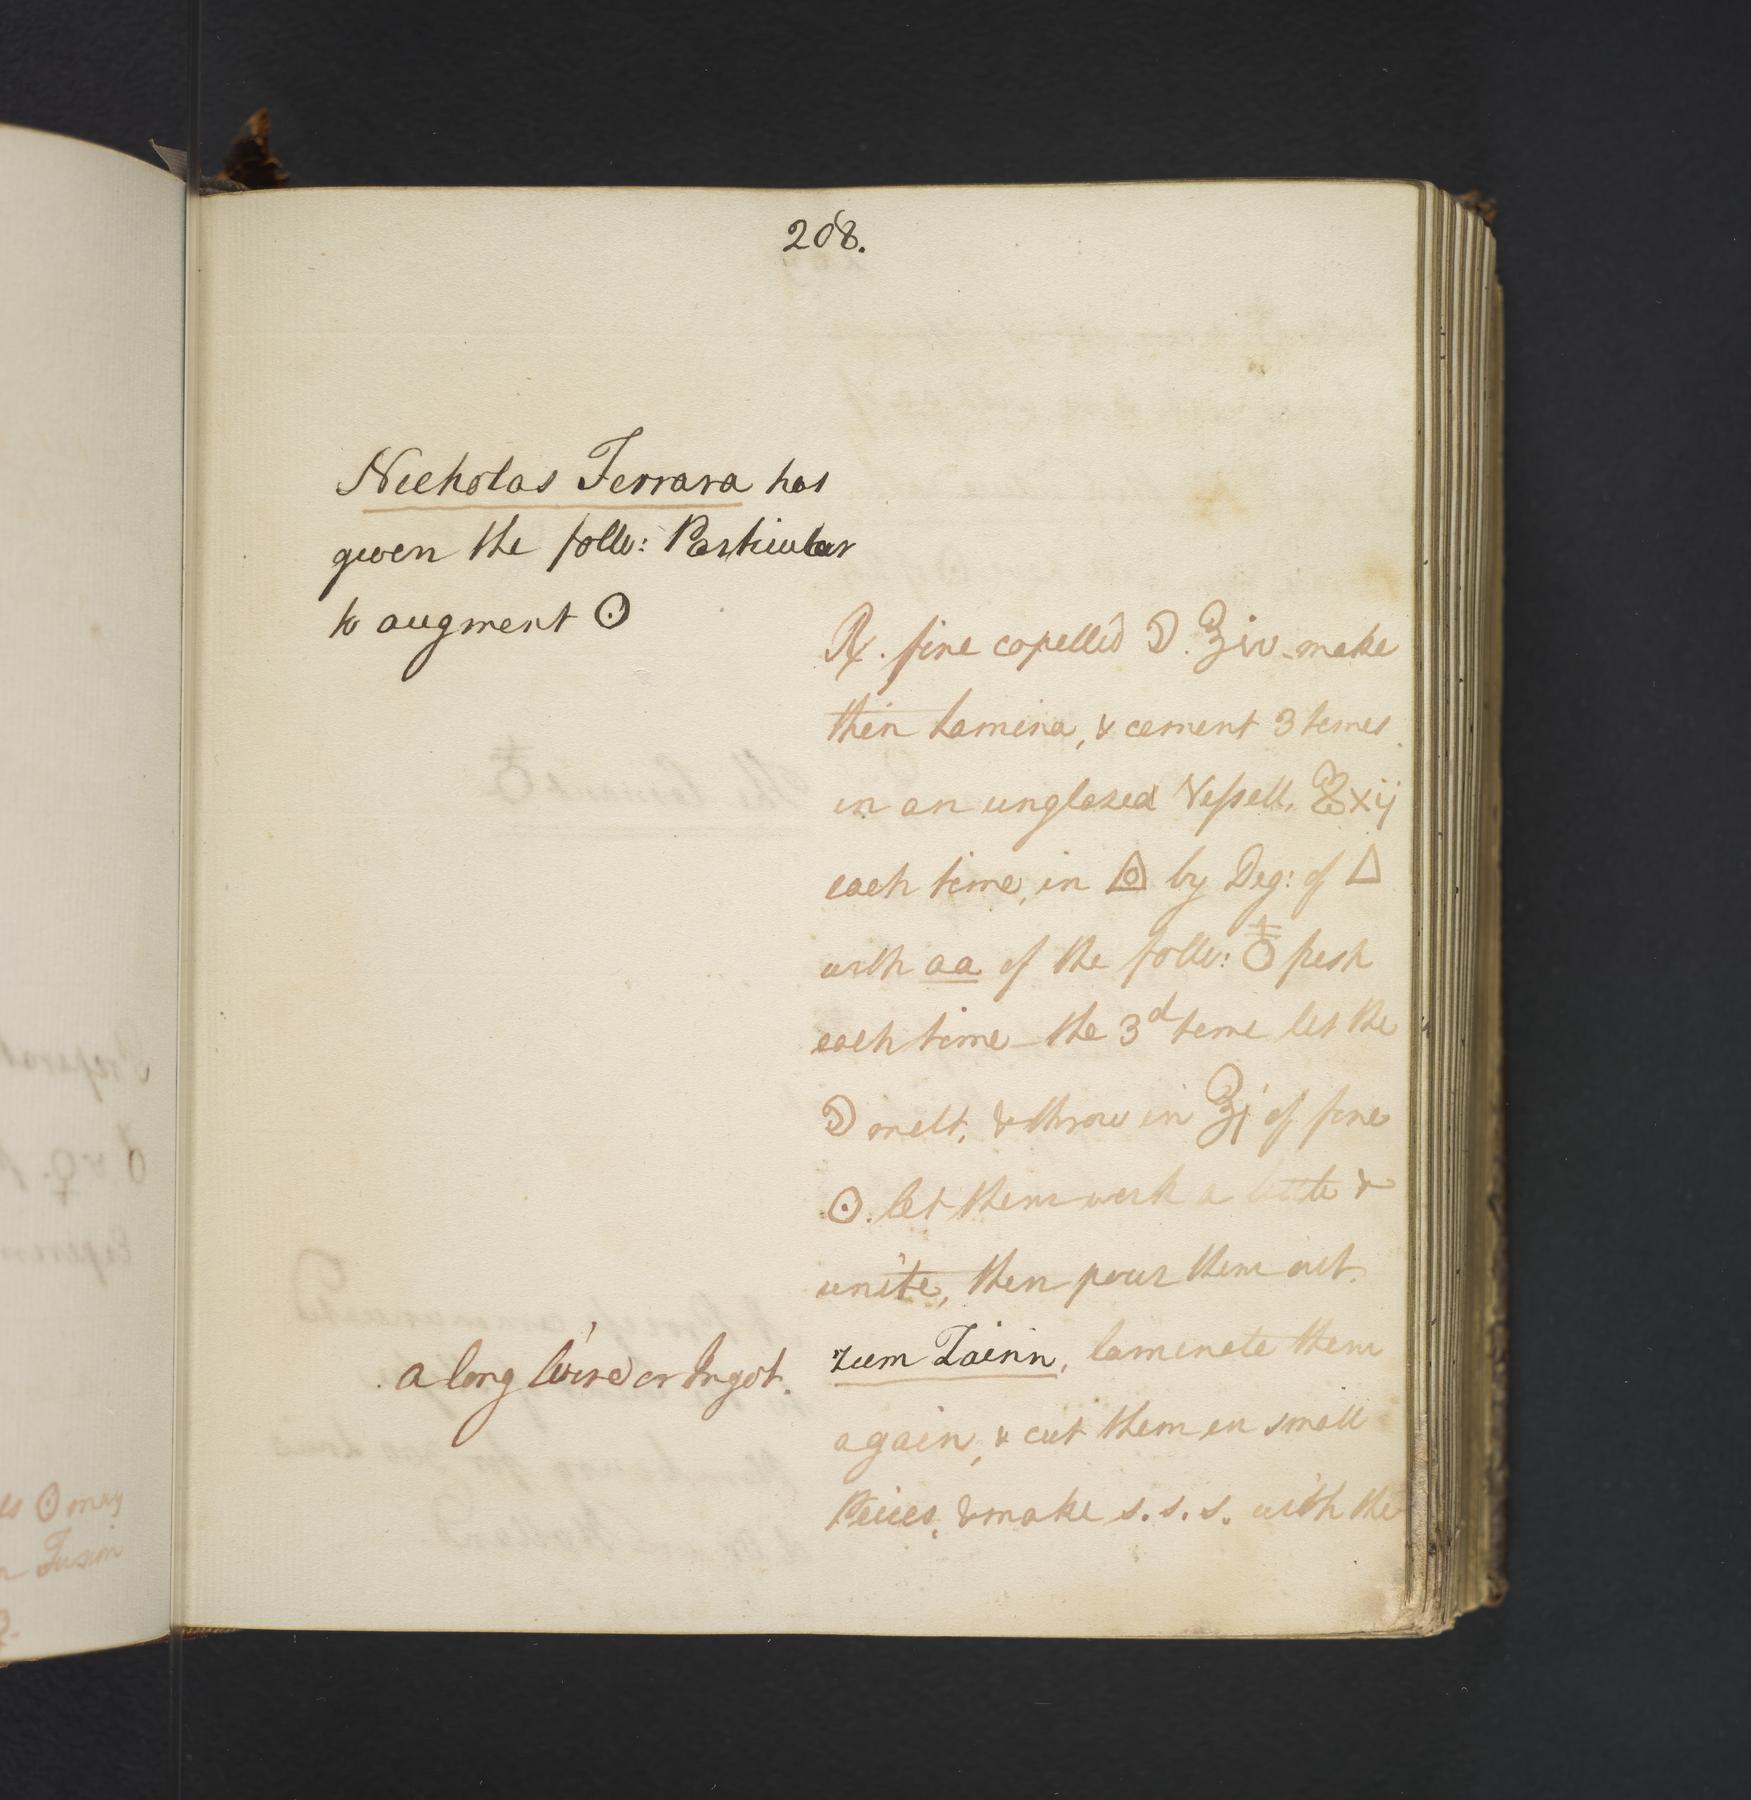 208.
Nicholas Ferrara has
given the follw: Particular
to augment ☉
℞. fine capelled ☽. ℥iv make
thin Lamina, & cement 3 times
in an unglazed Vessell, xij
each time, in by Deg: of △
with aa of the follw: ♁ fresh
each time – the 3d time let the
☽ melt, & throw in ℥j of fine
☉. let them work a little &
unite, then pour them out
zum Zainn, laminate them
a long Wire or Ingot.
again, & cut them in small
Peices, & make s. s. s. with the
es ☉ may
n Fusion
♀.